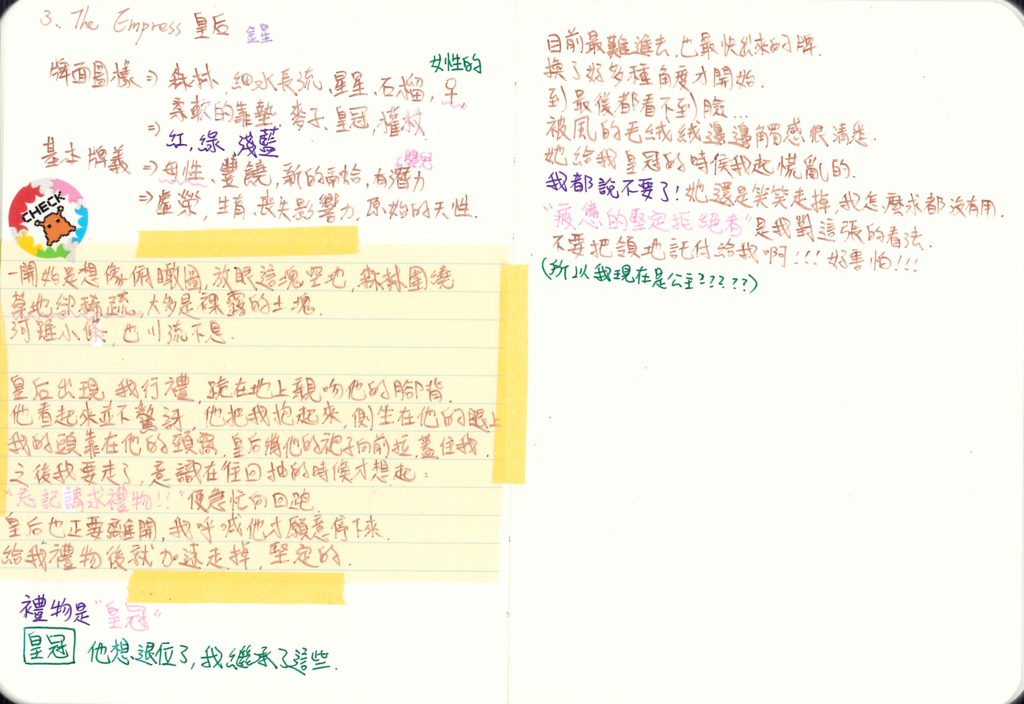 3、The Empress 皇后 金星
牌面圖樣 ⇒ 森林、細水長流、星星、石榴、♀ 女性的
柔軟的靠墊、麥子、皇冠、權杖
⇒ 紅、綠、淺藍
基本牌義 ⇒ 母性、豐饒，新的命，有潛力
⇒ 虛榮，生育、喪失影響力，原始的天性.
CHECK
一開始是想像俯瞰圖，放眼這塊空地，森林圍繞
草地卻稀疏，大多是裸露的土塊.
河雖小條，也川流不息.
皇后出現，我行禮，跪在地上親吻他的腳背.
他看起來並不驚訝，他把我抱起來，側坐在他的腿上
我的頭靠在他的頸窩，皇后將他的袍子向前拉，蓋住我.
之後我要走了，意識在往回抽的時候才想起：
"忘記請求禮物!!" 便急忙向回跑.
皇后也正要離開，我呼喊他才願意停下來.
給我禮物後就加速走掉，堅定的.
禮物是 "皇冠"
皇冠 他想退位了，我繼承了這些.
目前最難進去，也最快出來的牌.
換了好多種角度才開始.
到最後都看不到臉...
被風的毛絨絨邊邊觸感很清楚.
她給我皇冠的時候我超慌亂的.
我都說不要了! 她還是笑笑走掉，我怎麼求都沒有用.
"疲憊的堅定拒絕者" 是我對這張的看法.
不要把領地託付給我啊!!! 好害怕!!!
(所以我現在是公主?????)